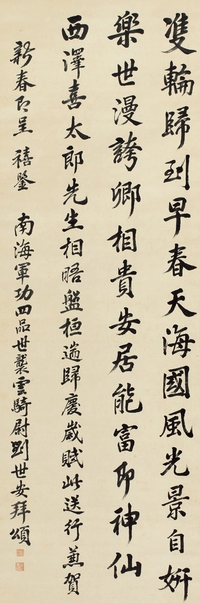 隻輪歸到早春天海國風光景自妍
樂世漫誇卿相貴安居能富即神仙
西澤喜太郎先生相晤盤桓遄歸慶歲賦此送行蒹賀
新春即呈 禧鑒 南海軍功四品世襲雲騎尉劉世安拜頌